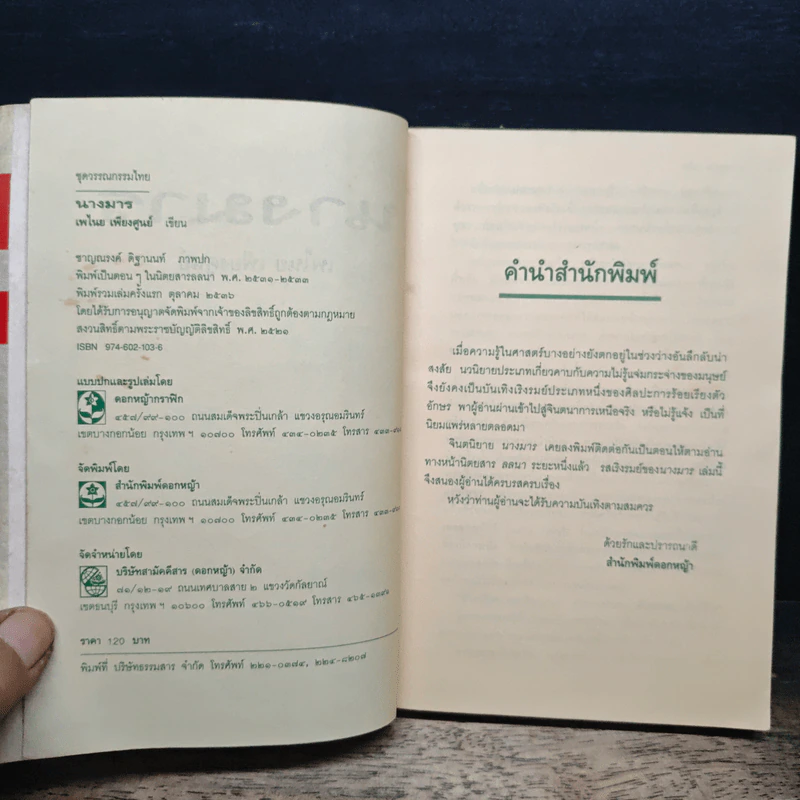 ชุดวรรณกรรมไทย
นางมาร
เพไนย เพียงศูนย์ เขียน
ชาญณรงค์ ดิฐานนท์ ภาพปก
พิมพ์เป็นตอน ๆ ในนิตยสารลลนา พ.ศ. ๒๕๓๑-๒๕๓๓
พิมพ์รวมเล่มครั้งแรก ตุลาคม ๒๕๓๖
โดยได้รับการอนุญาตจัดพิมพ์จากเจ้าของลิขสิทธิ์ถูกต้องตามกฎหมาย
สงวนสิทธิ์ตามพระราชบัญญัติลิขสิทธิ์ พ.ศ. ๒๕๒๑
ISBN 974-602-103-6
แบบปกและรูปเล่มโดย
ดอกหญ้ากราฟิก
๔๕๗/๙๙-๑๐๐ ถนนสมเด็จพระปิ่นเกล้า แขวงอรุณอมรินทร์
เขตบางกอกน้อย กรุงเทพฯ ๑๐๗๐๐ โทรศัพท์ ๔๓๔-๐๒๓๕ โทรสาร
จัดพิมพ์โดย
สำนักพิมพ์ดอกหญ้า
๔๕๗/๙๙-๑๐๐ ถนนสมเด็จพระปิ่นเกล้า แขวงอรุณอมรินทร์
เขตบางกอกน้อย กรุงเทพฯ ๑๐๗๐๐ โทรศัพท์ ๔๓๔-๐๒๓๕ โทรสาร
จัดจำหน่ายโดย
บริษัทสามัคคีสาร (ดอกหญ้า) จำกัด
๗๑/๑๒-๑๙ ถนนเทศบาลสาย ๒ แขวงวัดกัลยาณ์
เขตธนบุรี กรุงเทพฯ ๑๐๖๐๐ โทรศัพท์ ๔๖๖-๐๕๑๙ โทรสาร
ราคา 120 บาท
พิมพ์ที่ บริษัทธรรมสาร จำกัด โทรศัพท์ ๒๒๑-๐๓๗๔, ๒๒๔-๘๒๐๗
คำนำสำนักพิมพ์
เมื่อความรู้ในศาสตร์บางอย่างยังตกอยู่ในช่วงว่างอันลึกลับน่า
สงสัย นวนิยายประเภทเกี่ยวคาบกับความไม่รู้แจ่มกระจ่างของมนุษย์
จึงยังคงเป็นบันเทิงเริงรมย์ประเภทหนึ่งของศิลปะการร้อยเรียงตัว
อักษร พาผู้อ่านผ่านเข้าไปสู่จินตนาการเหนือจริง หรือไม่รู้แจ้ง เป็นที่
นิยมแพร่หลายตลอดมา
จินตนิยาย นางมาร เคยลงพิมพ์ติดต่อกันเป็นตอนให้ตามอ่าน
ทางหน้านิตยสาร ลลนา ระยะหนึ่งแล้ว รสเริงรมย์ของนางมาร เล่มนี้
จึงสนองผู้อ่านได้ครบรสครบเรื่อง
หวังว่าท่านผู้อ่านจะได้รับความบันเทิงตามสมควร
ด้วยรักและปรารถนาดี
สำนักพิมพ์ดอกหญ้า